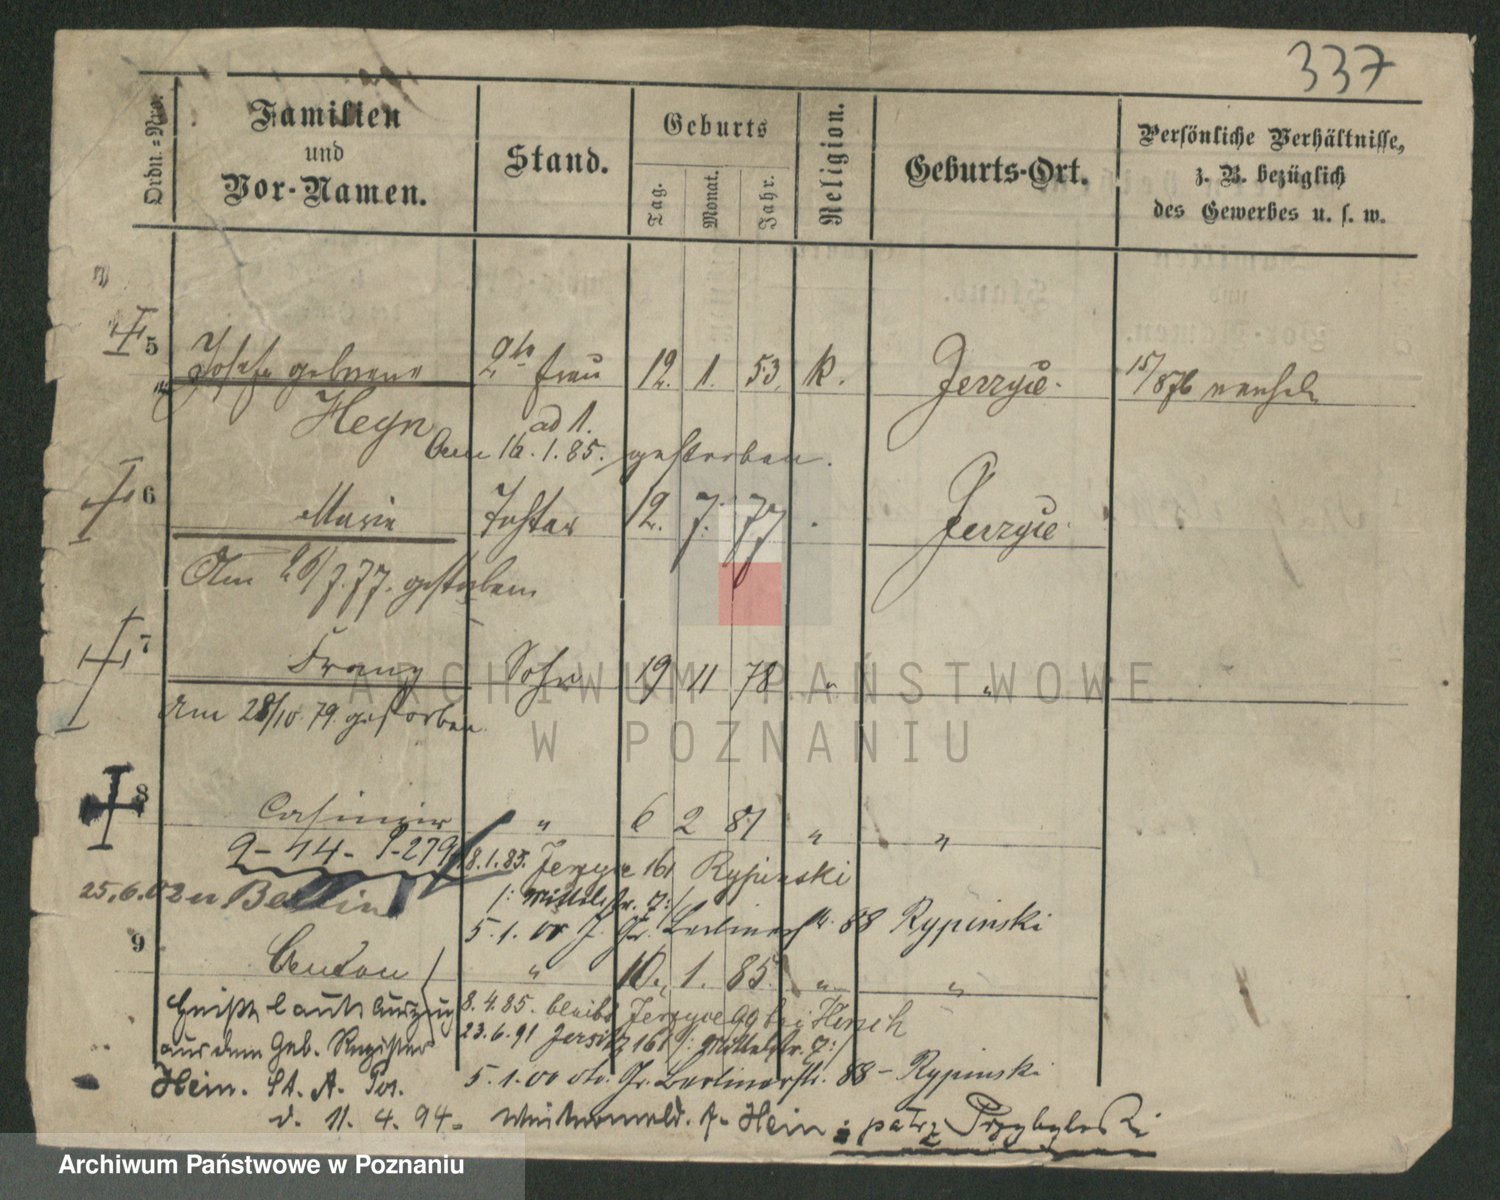 337
Ordn.-Nro.
Familien
und
Vor-Namen.
Stand.
Geburts
Tag.
Monat.
Jahr.
Religion.
Geburts-Ort.
Persönliche Verhältnisse,
z. B. bezüglich
des Gewerbes u. s. w.
5 Josefa geborene 2te Frau 12. 1. 53. K. Jerzyce. 15/876
Heyn ad 1.
Am 16.1.85. gestorben.
6 Marie Tochter 12. 7. 77. Jerzyce
Am 26/7.77. gestorben
7 Franz Sohn 19 11 78 " "
Am 28/10 79. gestorben
8 Casimir " 6 2 81 " "
9-44-I-279 8.1.85. Jerzyce 161 Rypinski
/: Mittelstr. 7:/
25.6.02 n Berlin
5.1.00 J. Gr. Berlinerstr. 88 Rypinski
9 Anton " 10. 1. 85. " "
heißt laut Auszug 8.4.85. bleibt Jerzyce 99 bei Hirsch
aus dem Geb. Register 23.6.91 Jersitz 161 /: Mittelstr. 7:/
Hein. St. A. Pos. 5.1.00 Gr. Berlinerstr. 88 - Rypinski
d. 11.4.94. Hein: patrz Przybylski
ARCHIWUM PAŃSTWOWE
W POZNANIU
Archiwum Państwowe w Poznaniu